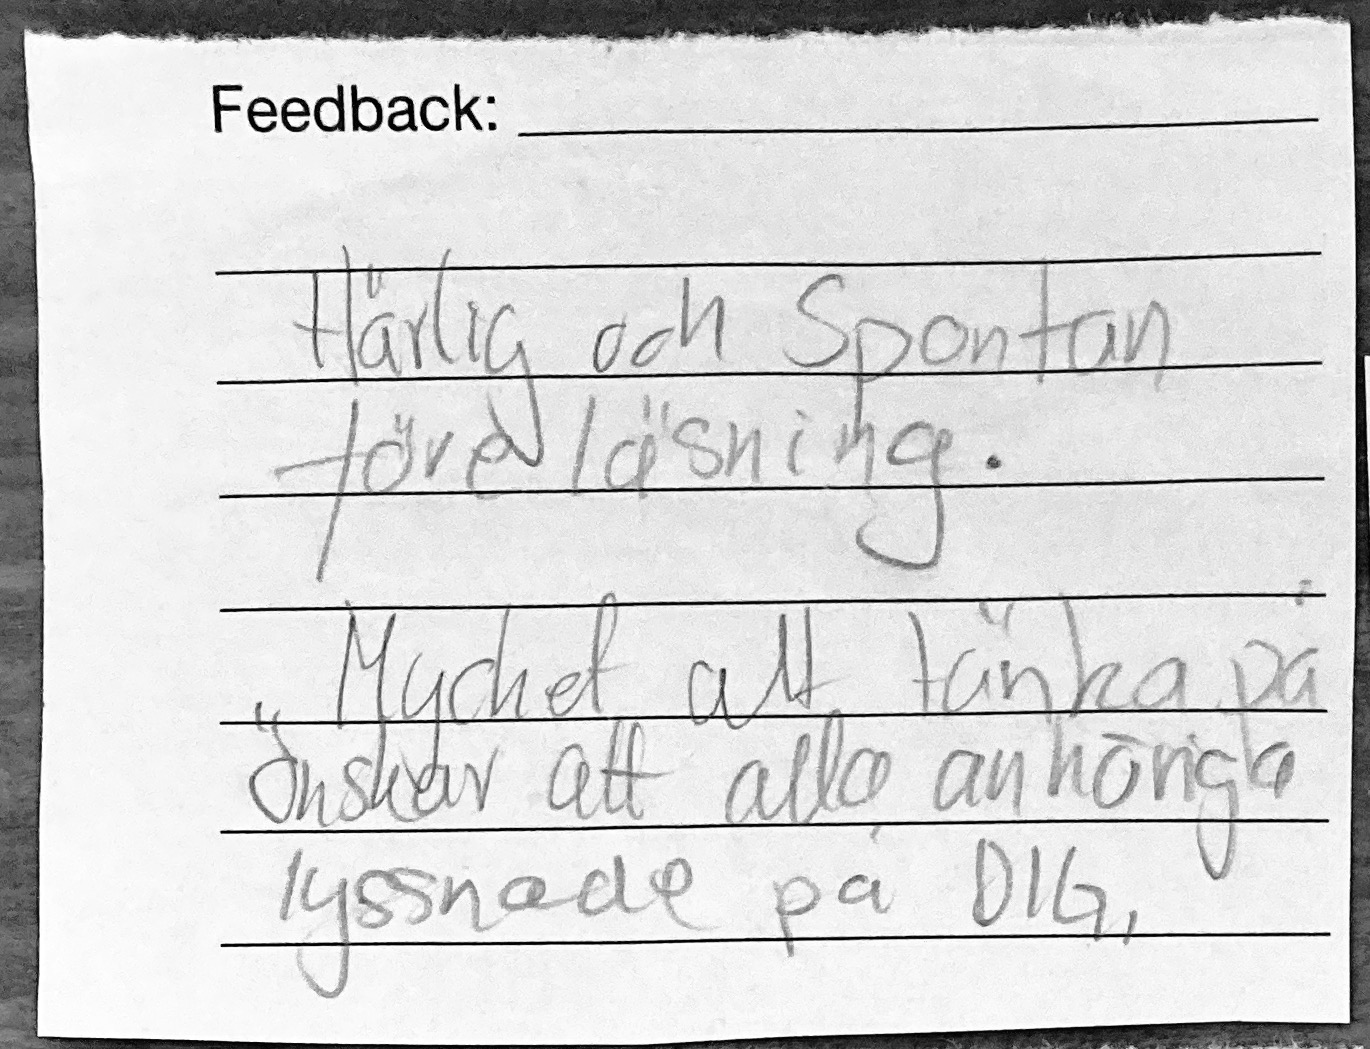 Feedback:
Härlig och Spontan
föreläsning.
Mycket att tänka på
önskar att alla anhöriga
lyssnade på DIG,